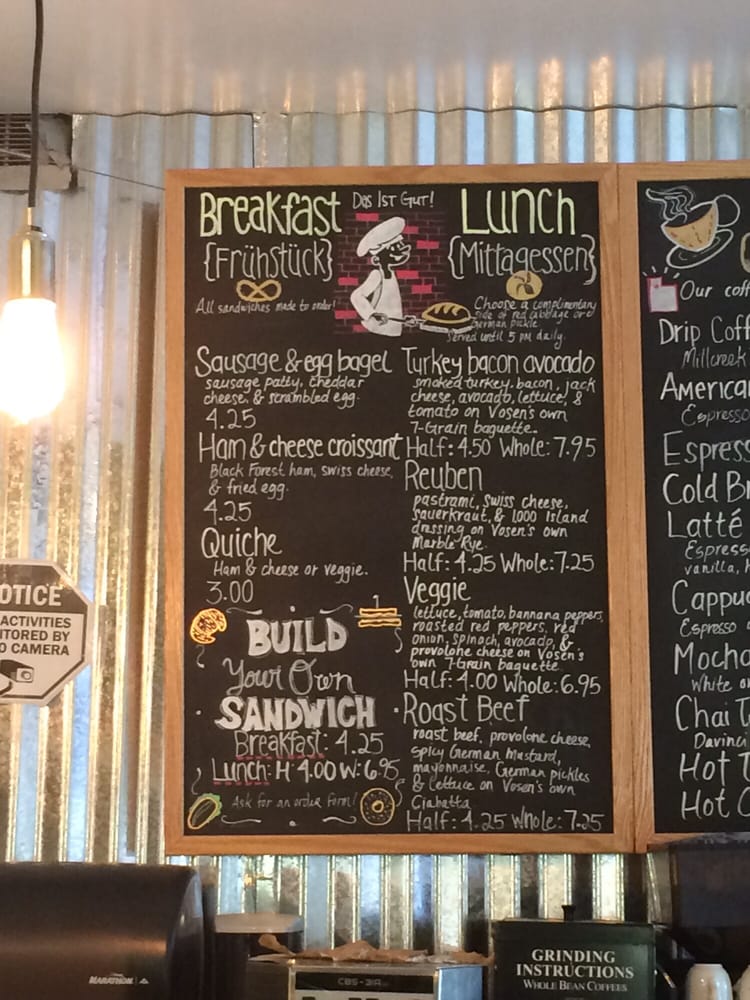 Breakfast
{Frühstück}
All sandwiches made to order!
Das Ist Gut!
Lunch
{Mittagessen}
Choose a complimentary
side of red cabbage or a
German pickle
Served until 5 PM daily.
Sausage & egg bagel
sausage patty, cheddar
cheese, & scrambled egg.
4.25
Ham & cheese croissant
Black Forest ham, swiss cheese,
& fried egg.
4.25
Quiche
Ham & cheese or veggie.
3.00
BUILD
Your Own
SANDWICH
Breakfast: 4.25
Lunch: H 4.00 W: 6.95
Ask for an order form!
Turkey bacon avocado
smoked turkey, bacon, jack
cheese, avocado, lettuce, &
tomato on Vosen's own
7-Grain baguette.
Half: 4.50 Whole: 7.95
Reuben
pastrami, swiss cheese,
sauerkraut, & 1,000 Island
dressing on Vosen's own
Marble Rye.
Half: 4.25 Whole: 7.25
Veggie
lettuce, tomato, bannana peppers,
roasted red peppers, red
onion, spinach, avocado, &
provolone cheese on Vosen's
own 7-Grain baguette.
Half: 4.00 Whole: 6.95
Roast Beef
roast beef, provolone cheese,
spicy German Mustard,
mayonnaise, German pickles
& lettuce on Vosen's own
Ciabatta
Half: 4.25 Whole: 7.25
Our coff
Drip Coff
Millcreek
America
Espresso
Espress
Cold Br
Latté
Espress
vanilla, h
Cappuc
Espresso
Mocha
White or
Chai T
Davinci
Hot T
Hot C
OTICE
ACTIVITIES
ITORED BY
O CAMERA
MARATHON
CBS-31A
GRINDING
INSTRUCTIONS
WHOLE BEAN COFFEES